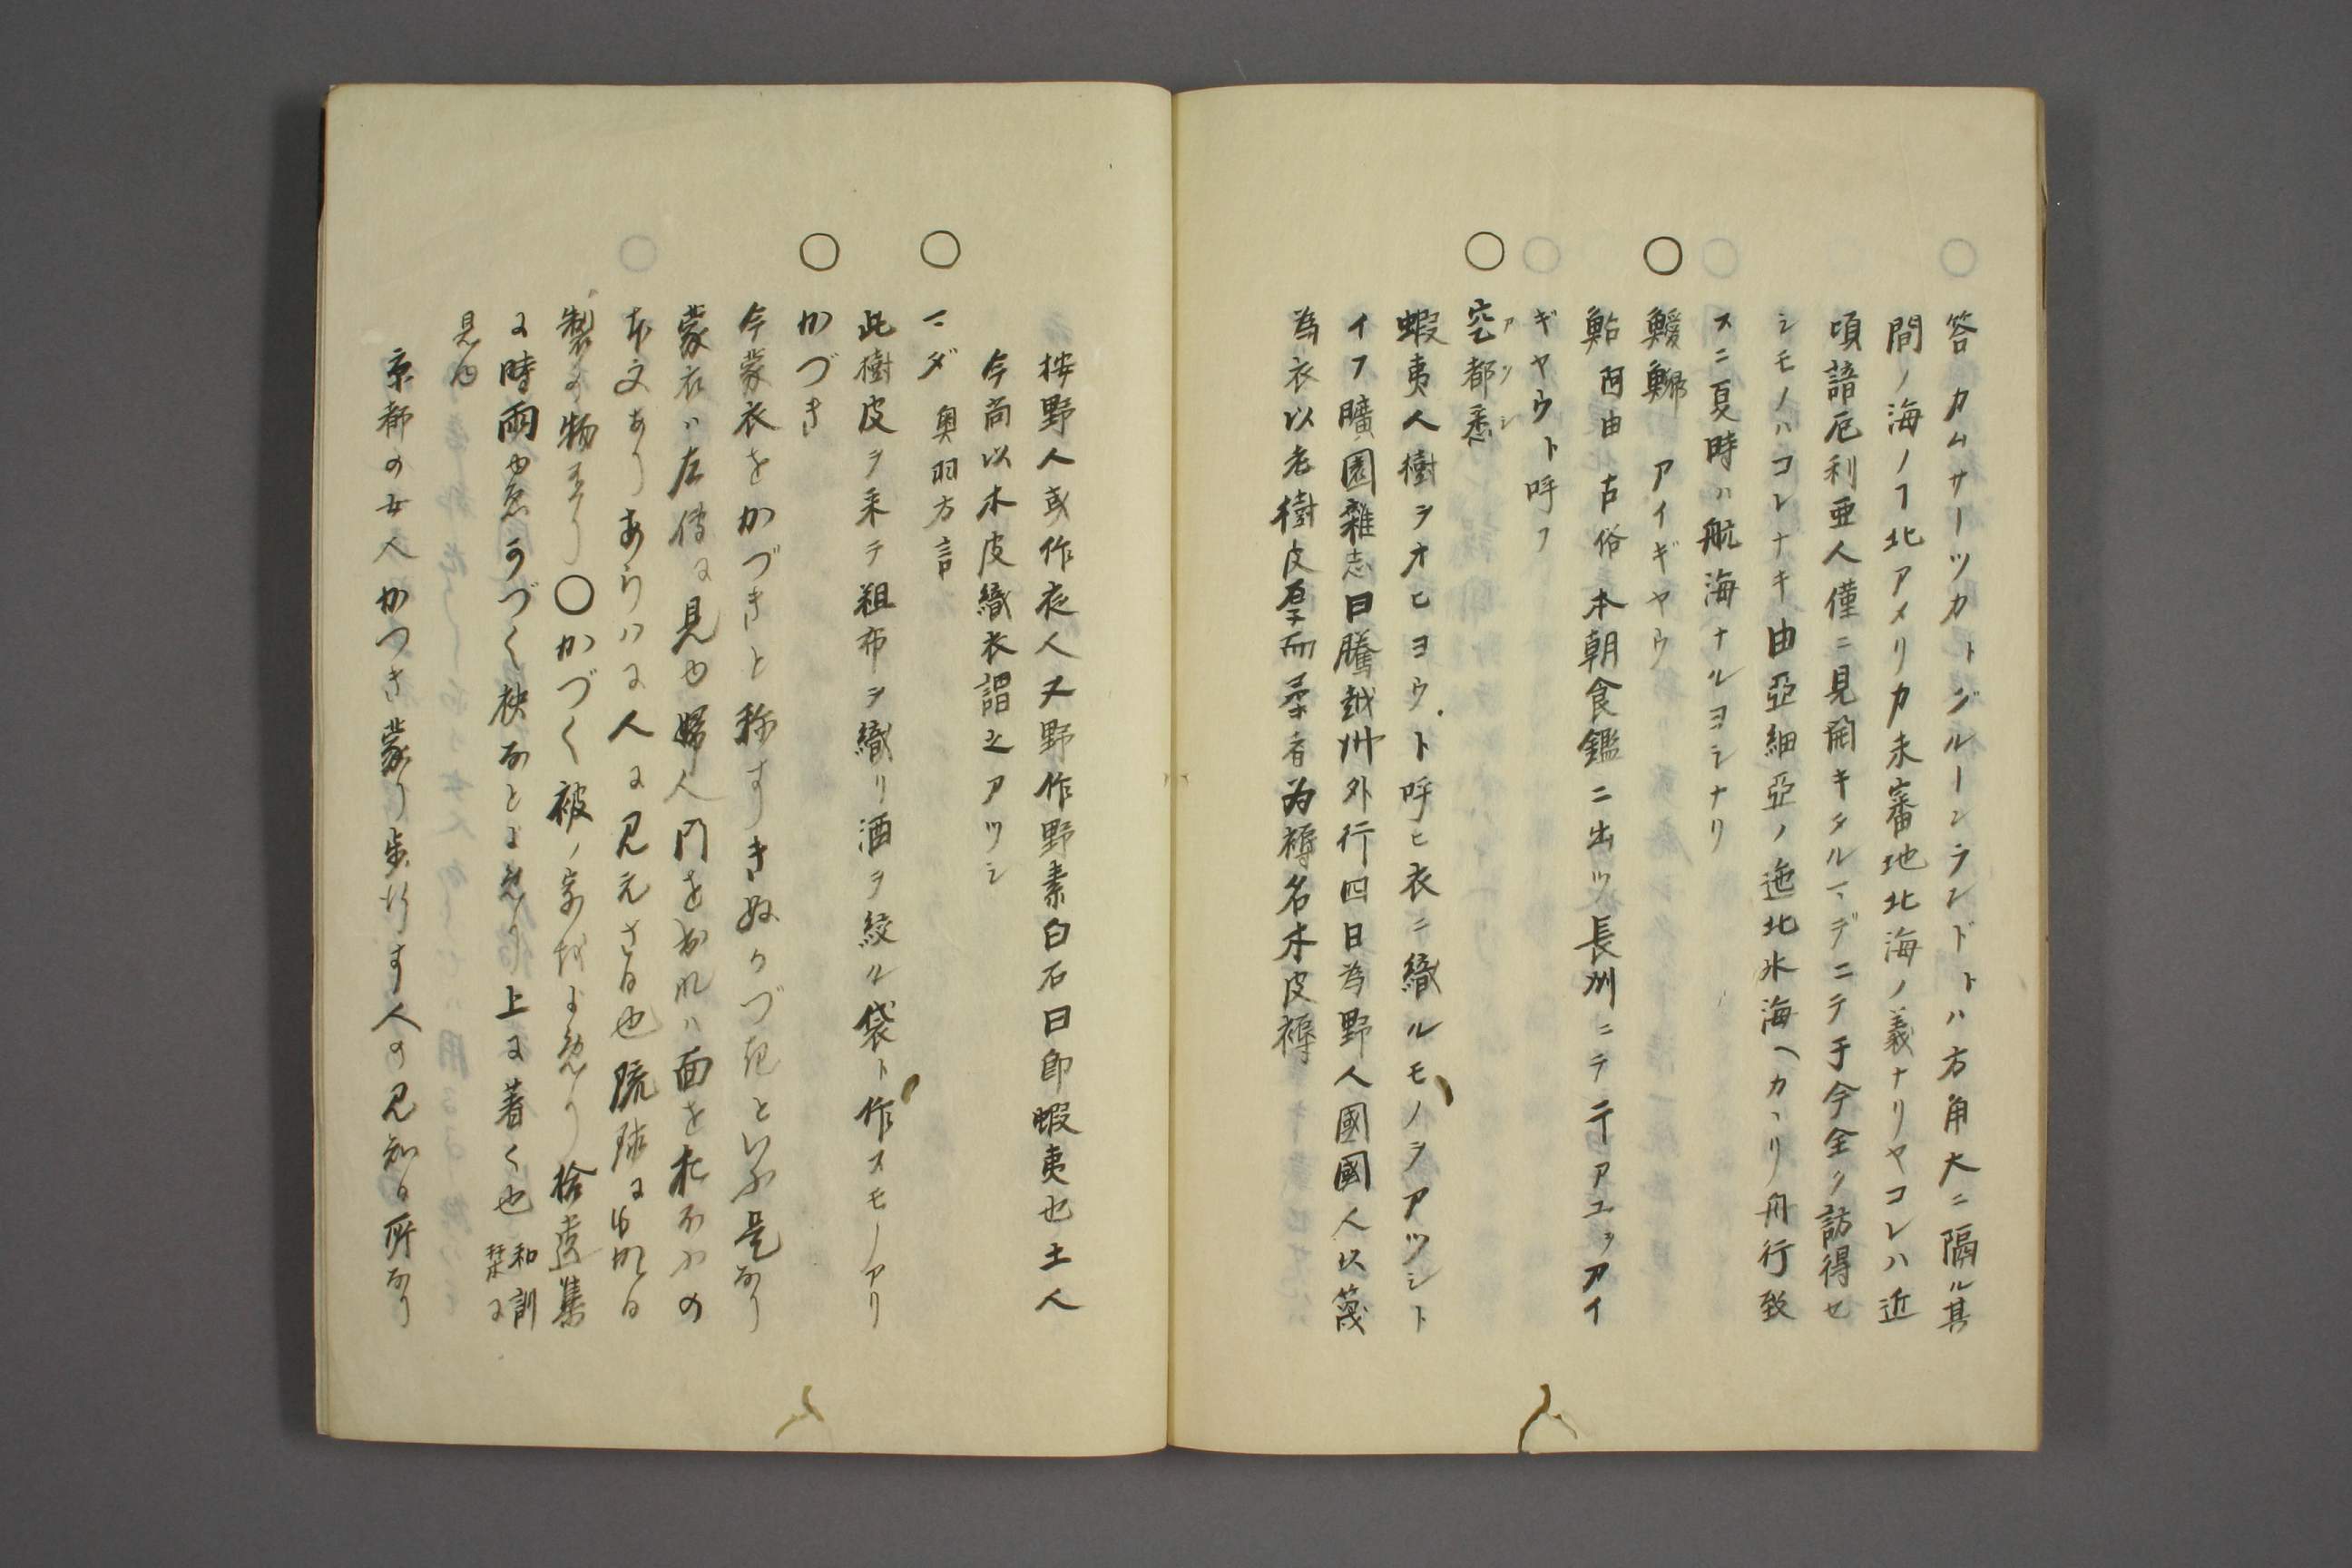 答 カムサーツカトジルーンランドトハ方角大ニ隔ル其
間ノ海ノヿ北アメリカ未審地北海ノ義ナリヤコレハ近
頃諳厄利亜人僅ニ見開キタルマデニテ于今全ク訪得セ
シモノハコレナキ由亞細亞ノ迤北氷海ヘカヽリ舟行致
スニ夏時ハ航海ナルヨシナリ
○ 鰀鯞 アイギヤウ
鮎 阿由 古俗 本朝食鑑ニ出ツ 長州ニテ干アユヲアイ
ギヤウト呼フ
○ 空都悉 アツシ
蝦夷人樹ヲオヒヨウト呼ヒ衣ニ織ルモノヲアツシト
イフ曠園雜志曰騰越州外行四日為野人國國人以蔑
為衣以老樹皮厚而柔者为褥名木皮褥
按野人或作夜人又野作野素白石曰即蝦夷也土人
今尚以木皮織衣謂之アツシ
○ マダ 奥羽方言
此樹皮ヲ釆テ粗布ヲ織リ酒ヲ絞ル袋ト作スモノアリ
○ かづき
今蒙衣をかづきと称すきぬかづきといふ是なり
蒙衣ハ左傳に見ゆ婦人門を出れハ面をおほふの
本文ありあらハに人に見えさる也琉球にゆかる
製の物なり○かづく被ノ字をよめり拾遺集
に時雨ゆゑかづく袂なとよめり上に著く也 和訓栞に
見ゆ
京都の女人かつき蒙り歩行す人の見知る所なり